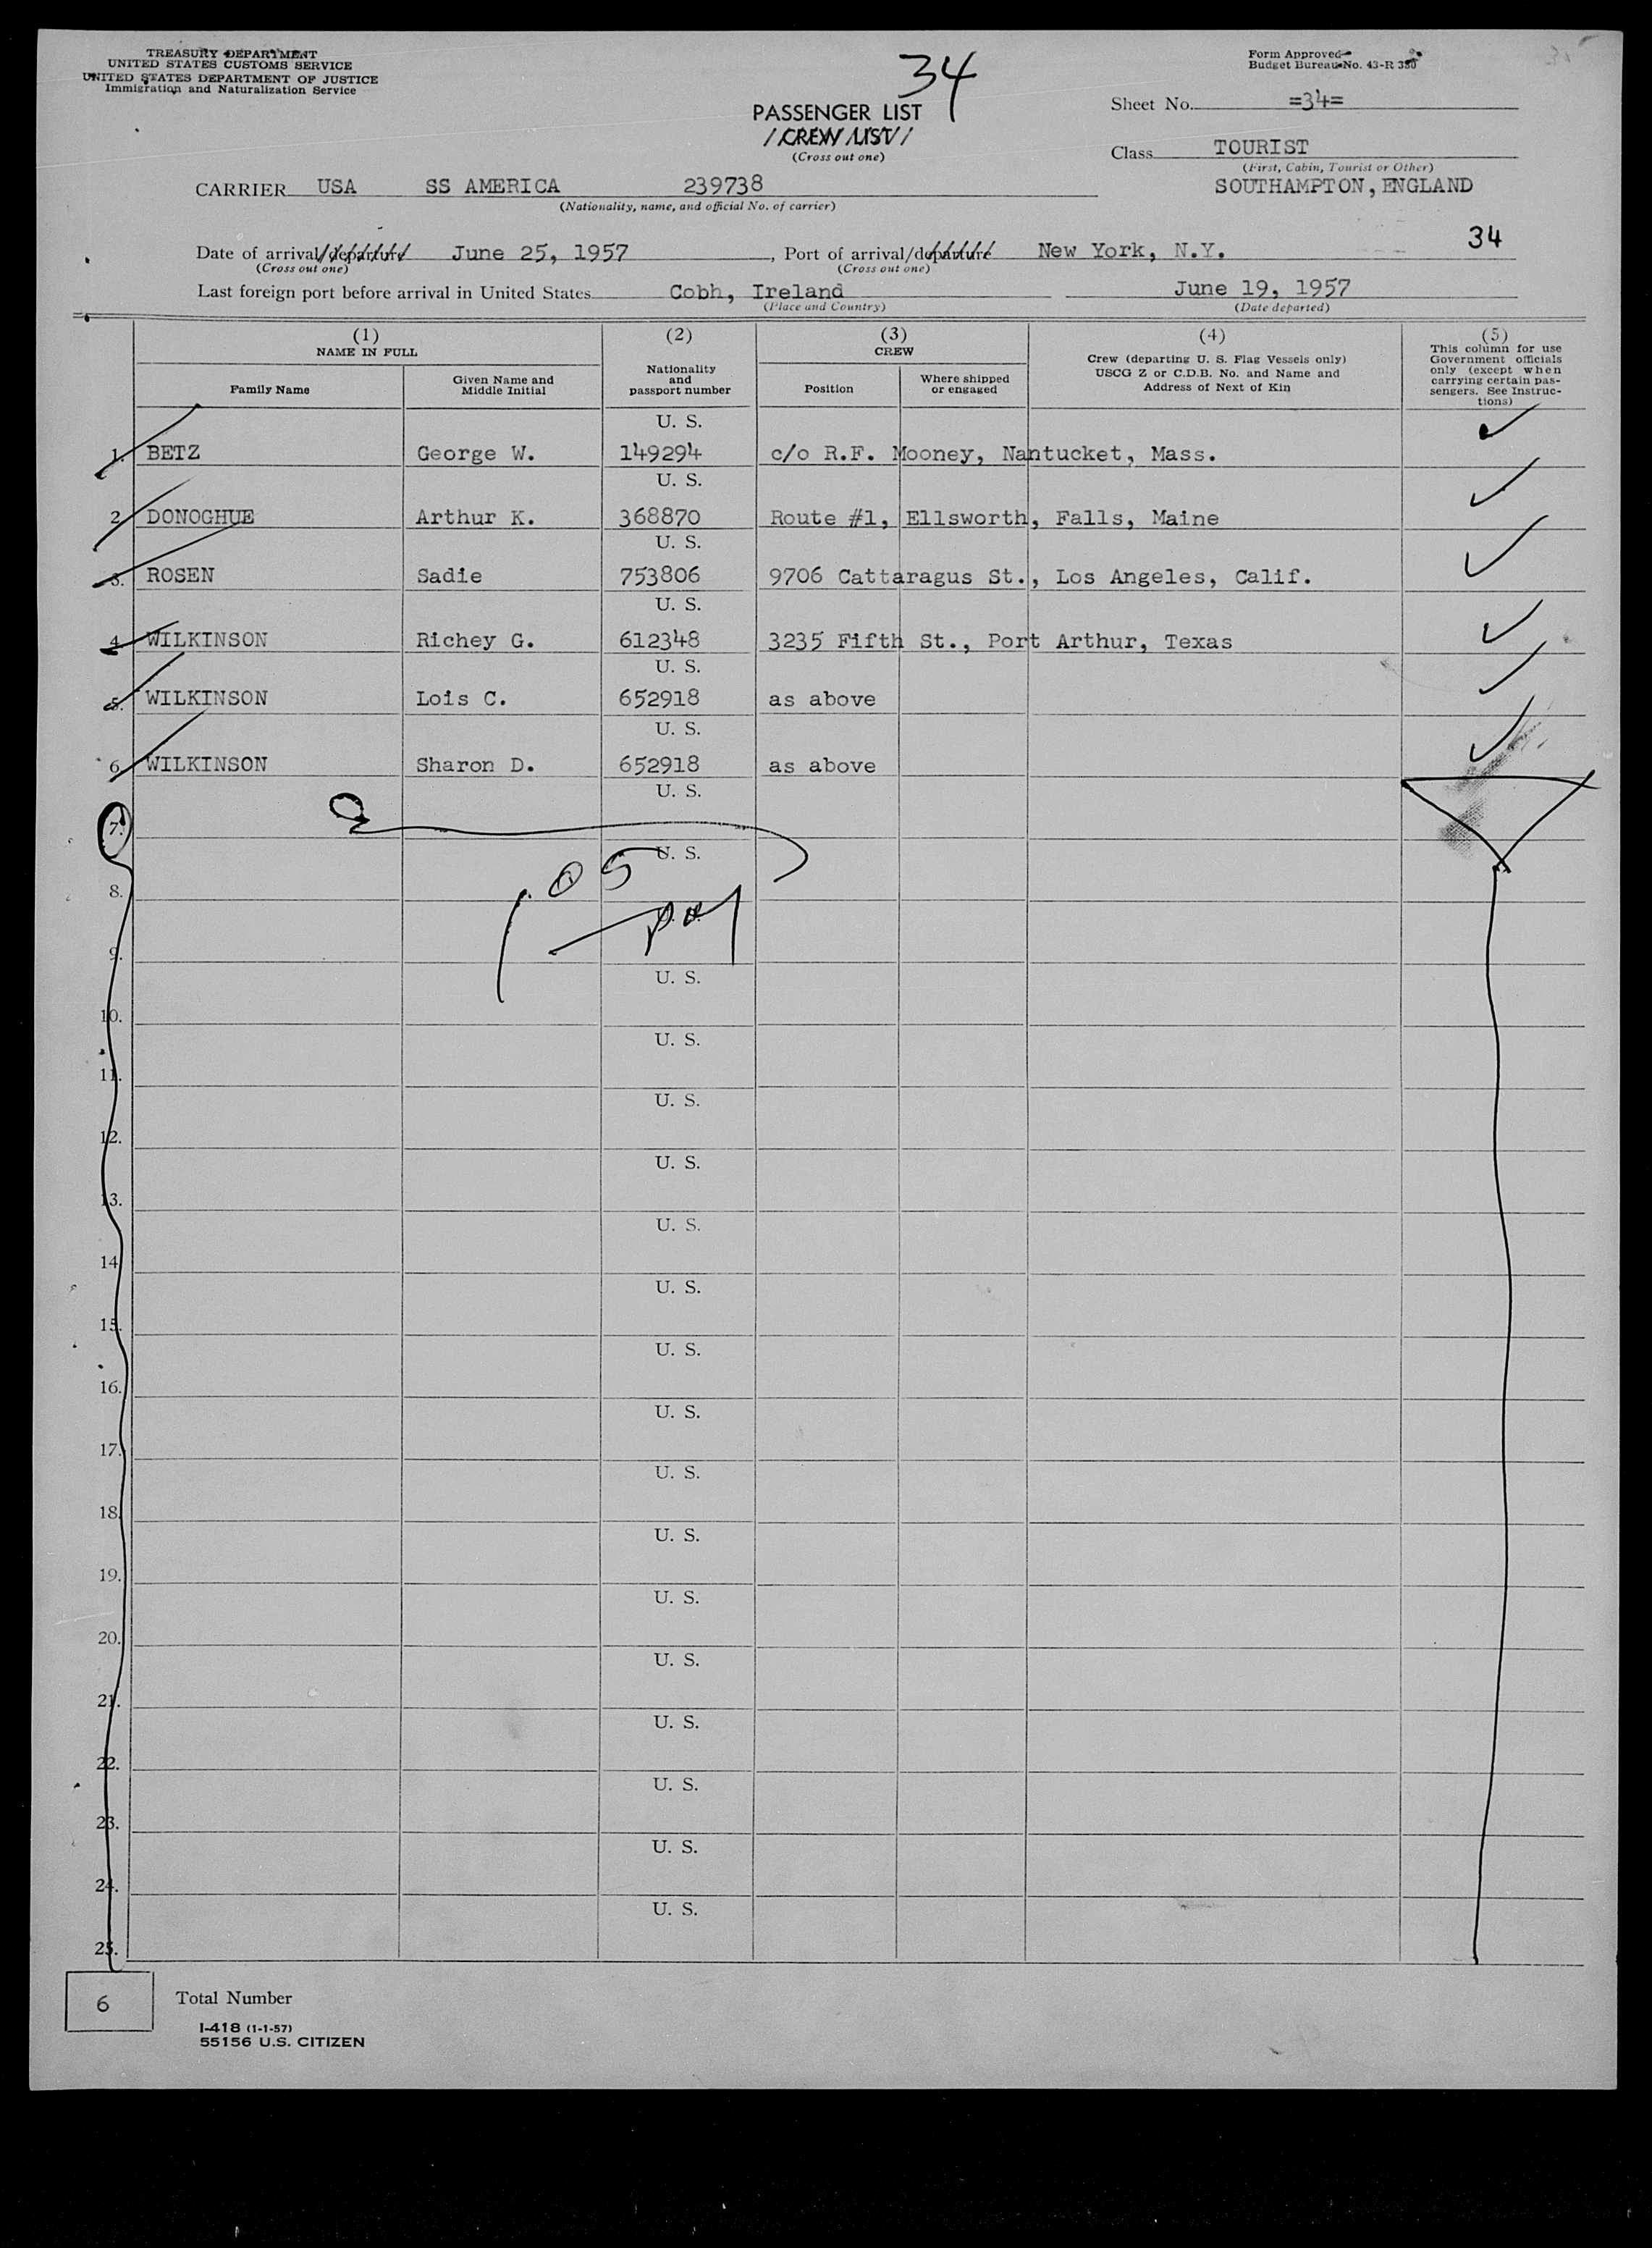 TREASURY DEPARTMENT
UNITED STATES CUSTOMS SERVICE
UNITED STATES DEPARTMENT OF JUSTICE
Immigration and Naturalization Service
34
Form Approved
Budget Bureau No. 43-R 380
PASSENGER LIST
CREW LIST
(Cross out one)
Sheet No. =34=
Class TOURIST
(First, Cabin, Tourist or Other)
CARRIER USA SS AMERICA 239738
SOUTHAMPTON, ENGLAND
(Nationality, name, and official No. of carrier)
34
Date of arrival/departure June 25, 1957, Port of arrival/departure New York, N.Y.
(Cross out one) (Cross out one)
Last foreign port before arrival in United States Cobh, Ireland June 19, 1957
(Place and Country) (Date departed)
(1) (2) (3) (4) (5)
NAME IN FULL
Family Name
Given Name and
Middle Initial
Nationality
and
passport number
CREW
Position
Where shipped
or engaged
Crew (departing U. S. Flag Vessels only)
USCG Z or C.D.B. No. and Name and
Address of Next of Kin
This column for use
Government officials
only (except when
carrying certain pas-
sengers. See Instruc-
tions)
U. S.
1. BETZ George W. 149294 c/o R.F. Mooney, Nantucket, Mass.
U. S.
2. DONOGHUE Arthur K. 368870 Route #1, Ellsworth, Falls, Maine
U. S.
3. ROSEN Sadie 753806 9706 Cattaragus St., Los Angeles, Calif.
U. S.
4. WILKINSON Richey G. 612348 3235 Fifth St., Port Arthur, Texas
U. S.
5. WILKINSON Lois C. 652918 as above
U. S.
6. WILKINSON Sharon D. 652918 as above
U. S.
7.
U. S.
8.
9.
U. S.
10.
U. S.
11.
U. S.
12.
U. S.
13.
U. S.
14.
U. S.
15.
U. S.
16.
U. S.
17.
U. S.
18.
U. S.
19.
U. S.
20.
U. S.
21.
U. S.
22.
U. S.
23.
U. S.
24.
U. S.
25.
6 Total Number
I-418 (1-1-57)
55156 U.S. CITIZEN